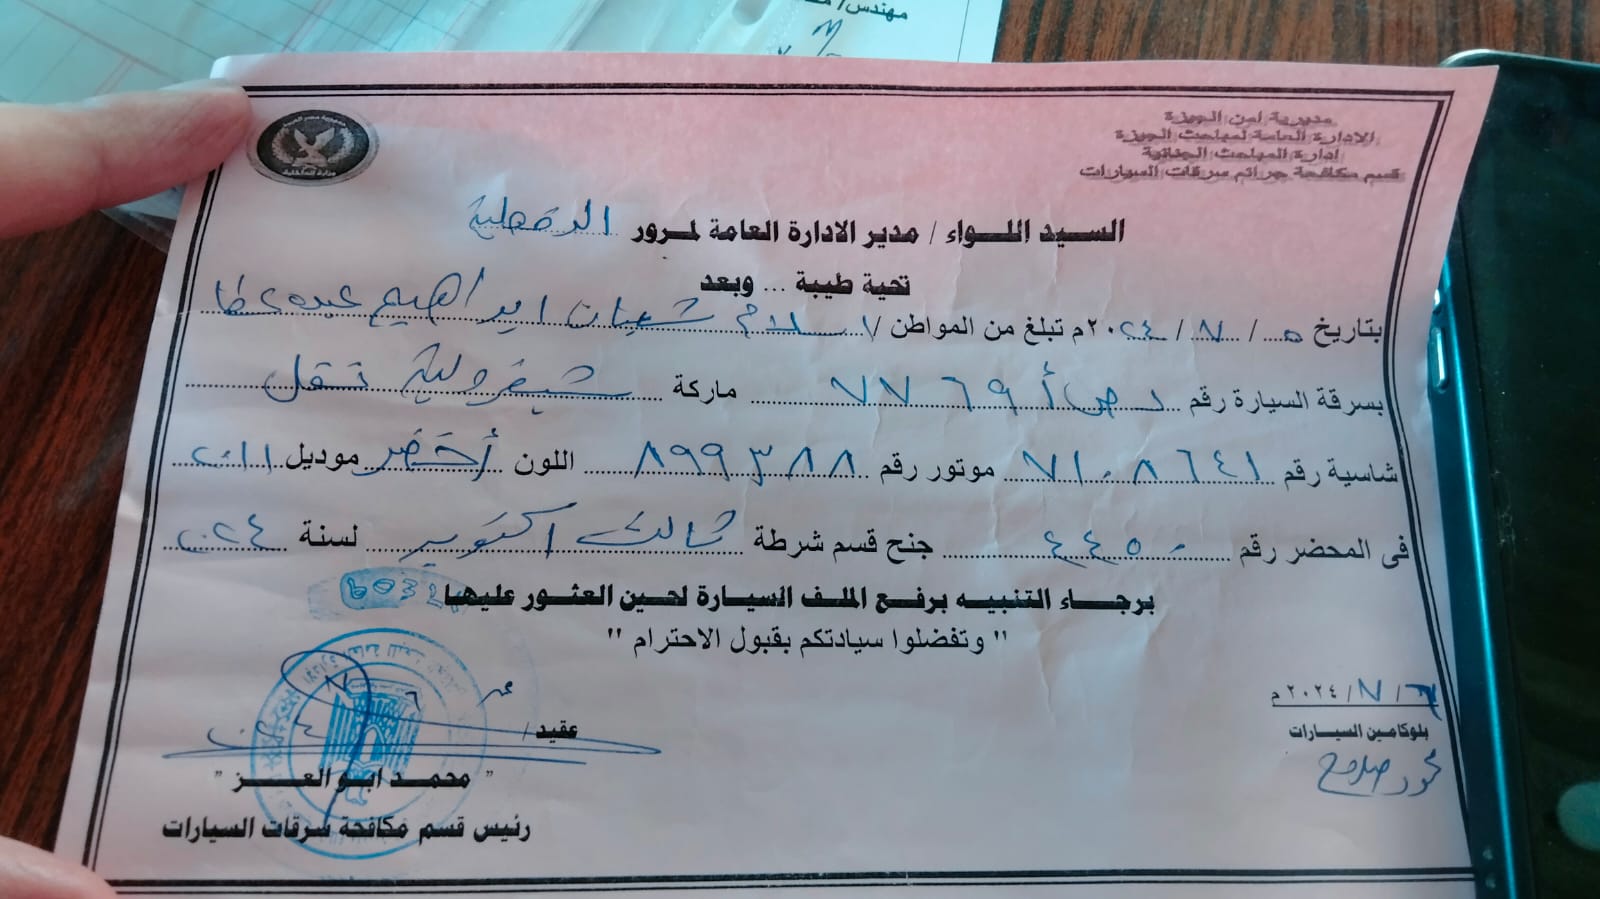 مهندس/
جمهورية مصر العربية
وزارة الداخلية
مديرية امن الجيزة
الادارة العامة لمباحث الجيزة
ادارة المباحث الجنائية
قسم مكافحة جرائم سرقات السيارات
السيد اللواء / مدير الادارة العامة لمرور الدقهلية
تحية طيبة ... وبعد
بتاريخ ٥ / ٧ / ٢٠٢٤م تبلغ من المواطن / اسلام شعبان ابراهيم عبده عطا
بسرقة السيارة رقم د ص أ ٧٧٦٩ ماركة شيفرولية نقل
شاسية رقم ٧١٠٨٦٤١ موتور رقم ٨٩٩٣٨٨ اللون أخضر موديل
فى المحضر رقم ٤٤٥٠ جنح قسم شرطة ثالث اكتوبر لسنة ٢٠٢٤
برجاء التنبيه برفع الملف السيارة لحين العثور عليها
" وتفضلوا سيادتكم بقبول الاحترام "
/ ٧ / ٢٠٢٤ م
بلوكامين السيارات
محمود صلاح
عقيد /
" محمد ابو العز "
رئيس قسم مكافحة سرقات السيارات